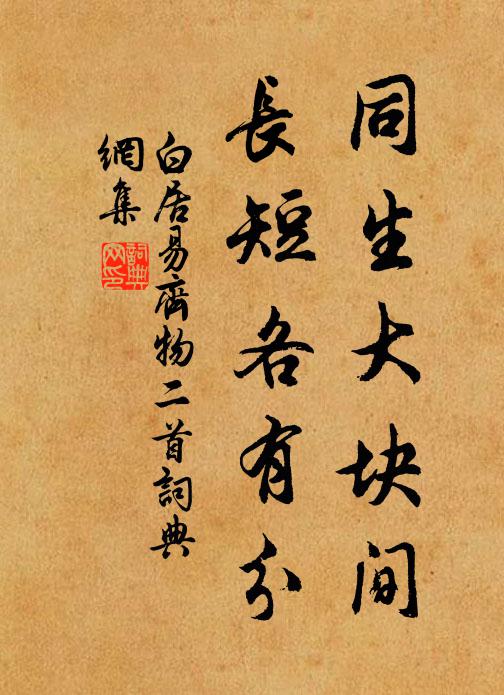 同生大块间
長短各有分
白居易齊物二首詞典
網集
詞典
网印